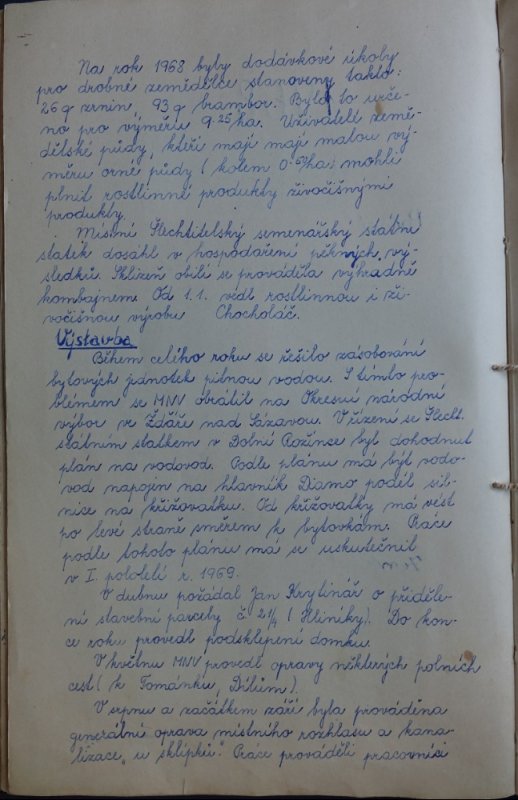 Na rok 1968 byly dodávkové úkoly
pro drobné zemědělce stanoveny takto:
26 q zrnin, 93 q brambor. Bylo to urče-
no pro výměru 9.25 ha. Uživatelé země-
dělské půdy, kteří mají mají malou vý-
měru orné půdy (kolem 0.50 ha) mohli
plnit rostlinné produkty živočišnými
produkty.
Místní Šlechtitelský semenářský státní
statek dosáhl v hospodaření pěkných vý-
sledků. Sklizeň obilí se prováděla výhradně
kombajnem. Od 1.1. vedl rostlinnou i ži-
vočišnou výrobu Chocholáč.
Výstavba
Během celého roku se řešilo zásobování
bytových jednotek pitnou vodou. S tímto pro-
blémem se MNV obrátil na Okresní národní
výbor ve Žďáře nad Sázavou. V řízení se Šlecht.
státním statkem v Dolní Rožínce byl dohodnut
plán na vodovod. Podle plánu má být vodo-
vod napojen na hlavník Diamo podél sil-
nice na křižovatku. Od křižovatky má vést
po levé straně směrem k bytovkám. Práce
podle tohoto plánu má se uskutečnit
v I. pololetí r. 1969.
V dubnu požádal Jan Krytinář o přiděle-
ní stavební parcely č. 21/4 (Hliníky). Do kon-
ce roku provedl podsklepení domku.
V květnu MNV provedl opravy některých polních
cest (k Tománku, Dílům).
V srpnu a začátkem září byla prováděna
generální oprava místního rozhlasu a kana-
lizace „u sklípků". Práce prováděli pracovníci